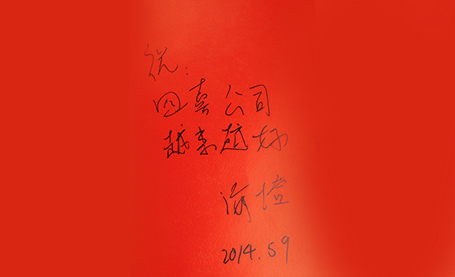 祝:
四喜公司
越来越好
海燈
2014.5.9